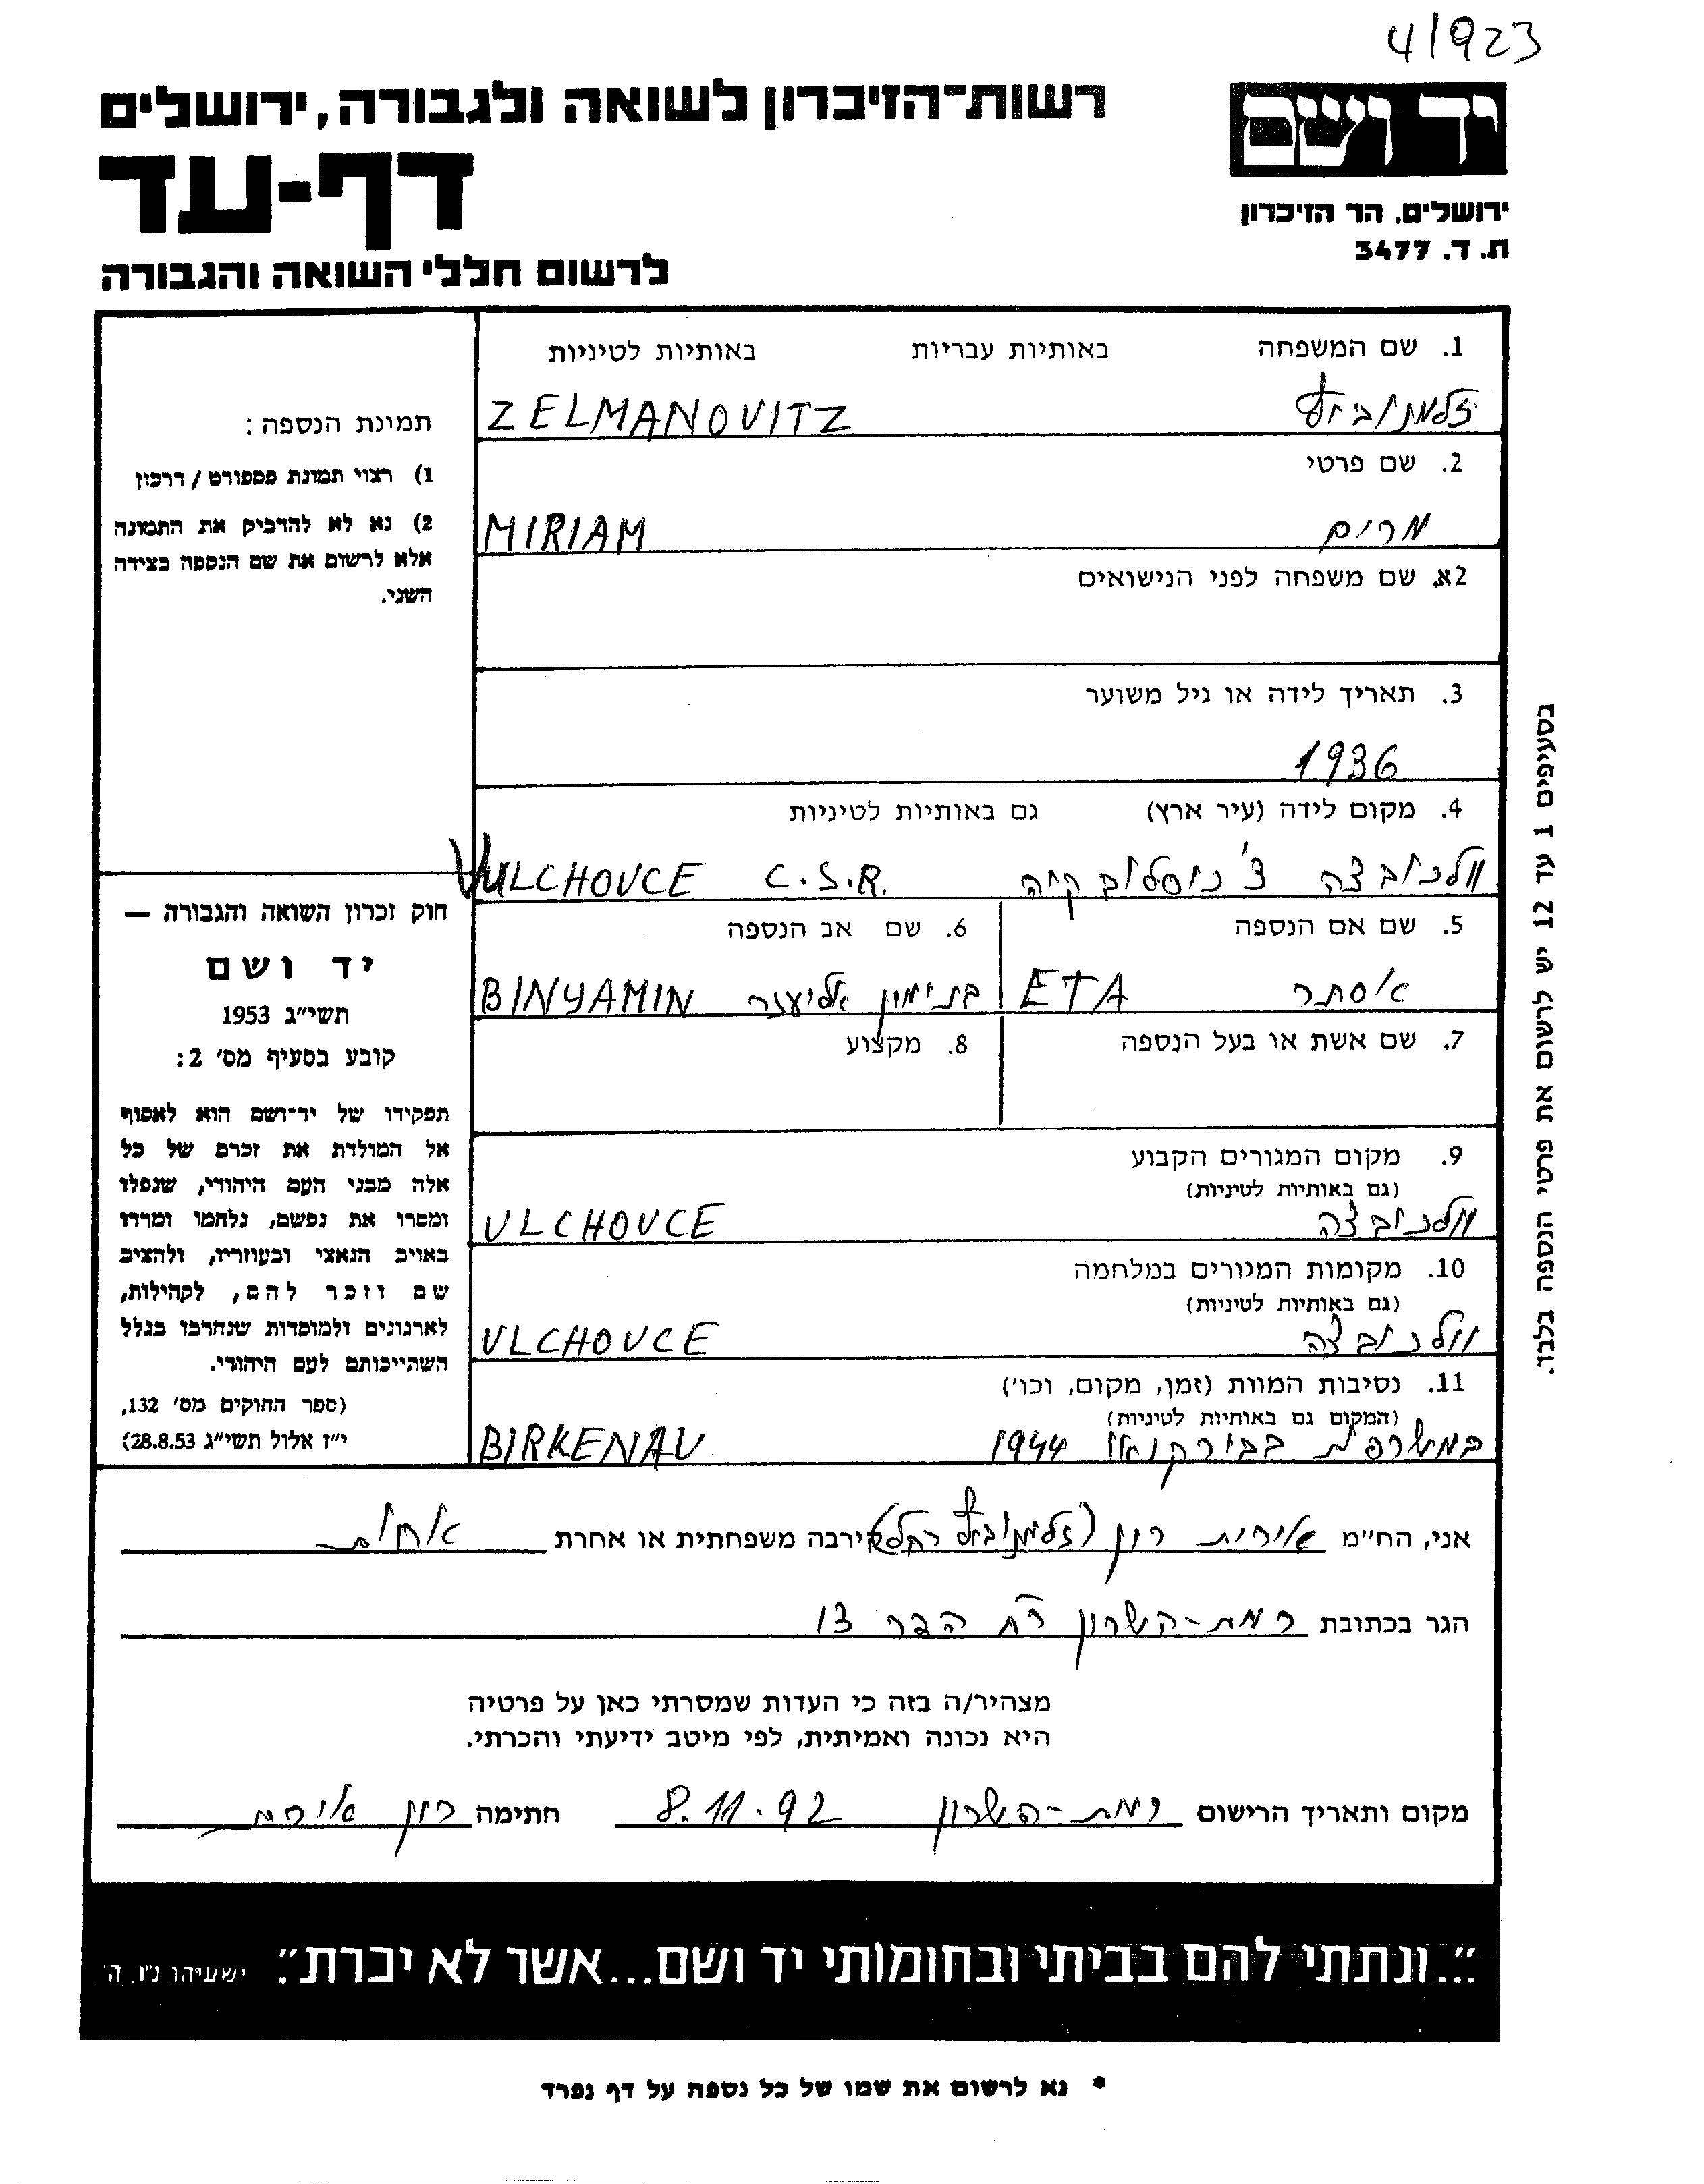 41923
רשות־הזיכרון לשואה ולגבורה, ירושלים
יד ושם
דף-עד
ירושלים. הר הזיכרון
ת. ד. 3477
לרשום חללי השואה והגבורה
1. שם המשפחה באותיות עבריות באותיות לטיניות
זלמנוביץ ZELMANOVITZ
2. שם פרטי
מרים MIRIAM
2א. שם משפחה לפני הנישואים
3. תאריך לידה או גיל משוער
1936
4. מקום לידה (עיר ארץ) גם באותיות לטיניות
וולכובצה צ'כוסלובקיה VULCHOVCE C.S.R.
5. שם אם הנספה 6. שם אב הנספה
אסתר ETA בנימין אליעזר BINYAMIN
7. שם אשת או בעל הנספה 8. מקצוע
9. מקום המגורים הקבוע
(גם באותיות לטיניות)
וולכובצה VLCHOVCE
10. מקומות המגורים במלחמה
(גם באותיות לטיניות)
וולכובצה VLCHOVCE
11. נסיבות המוות (זמן, מקום, וכו')
(המקום גם באותיות לטיניות)
במשרפות בבירקנאו 1944 BIRKENAU
תמונת הנספה:
1) רצוי תמונת פספורט / דרכון
2) נא לא להדביק את התמונה
אלא לרשום את שם הנספה בצידה
השני.
חוק זכרון השואה והגבורה —
יד ושם
תשי"ג 1953
קובע בסעיף מס' 2:
תפקידו של יד־ושם הוא לאסוף
אל המולדת את זכרם של כל
אלה מבני העם היהודי, שנפלו
ומסרו את נפשם, נלחמו ומרדו
באויב הנאצי ובעוזריו, ולהציב
שם וזכר להם, לקהילות,
לארגונים ולמוסדות שנחרבו בגלל
השתייכותם לעם היהודי.
(ספר החוקים מס' 132,
י"ז אלול תשי"ג 28.8.53)
בסעיפים 1 עד 12 יש לרשום את פרטי הנספה בלבד.
אני, הח"מ אורית רון (זלמנוביץ רחל) קירבה משפחתית או אחרת אחות
הגר בכתובת רמת-השרון רח הבר 13
מצהיר/ה בזה כי העדות שמסרתי כאן על פרטיה
היא נכונה ואמיתית, לפי מיטב ידיעתי והכרתי.
מקום ותאריך הרישום רמת-השרון 8.11.92 חתימה רון אורית
"...ונתתי להם בביתי ובחומותי יד ושם...אשר לא יכרת". ישעיהו נ"ו, ה'
* נא לרשום את שמו של כל נספה על דף נפרד